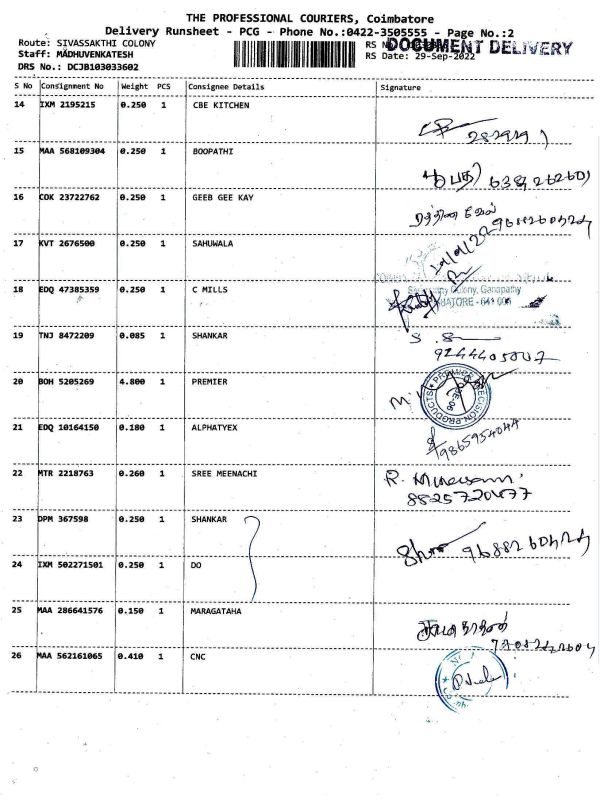 THE PROFESSIONAL COURIERS, Coimbatore
Delivery Runsheet - PCG - Phone No.:0422-3505555 - Page No.:2
Route: SIVASSAKTHI COLONY
RS No
DOCUMENT DELIVERY
Staff: MADHUVENKATESH
RS Date: 29-Sep-2022
DRS No.: DCJB103033602
S No Consignment No Weight PCS Consignee Details Signature
14 IXM 2195215 0.250 1 CBE KITCHEN
15 MAA 568109304 0.250 1 BOOPATHI
பூபதி
16 COK 23722762 0.250 1 GEEB GEE KAY
9688260424
17 KVT 2676500 0.250 1 SAHUWALA
18 EDQ 47385359 0.250 1 C MILLS
Colony, Ganapathy
19 TNJ 8472209 0.085 1 SHANKAR
20 BOH 5205269 4.800 1 PREMIER
PREMIER PRECISION PRODUCTS
21 EDQ 10164150 0.180 1 ALPHATYEX
9865954044
22 MTR 2218763 0.260 1 SREE MEENACHI
8825720477
23 DPM 367598 0.250 1 SHANKAR
9688260424
24 IXM 502271501 0.250 1 DO
25 MAA 286641576 0.150 1 MARAGATAHA
26 MAA 562161065 0.410 1 CNC